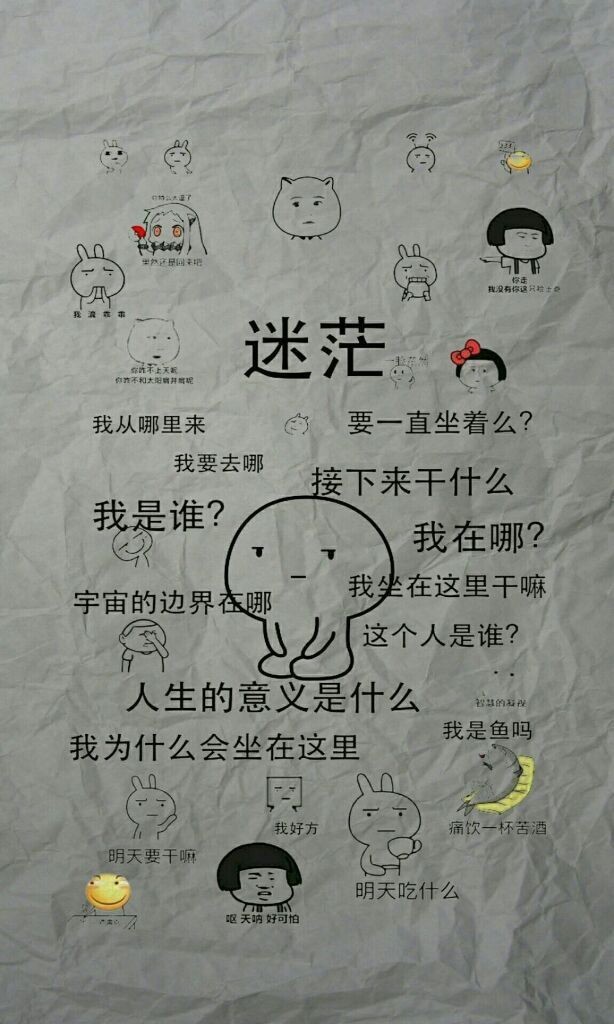 果然还是回来吧
你走
我没有你这只柴主奇
我 滴 乖 乖
迷茫
一脸茫然
你咋不上天呢
你咋不和太阳肩并肩呢
我从哪里来
要一直坐着么?
我要去哪
接下来干什么
我是谁?
我在哪?
我坐在这里干嘛
宇宙的边界在哪
这个人是谁?
人生的意义是什么
智慧的凝视
我是鱼吗
我为什么会坐在这里
我好方
痛饮一杯苦酒
明天要干嘛
明天吃什么
呕 天呐 好可怕